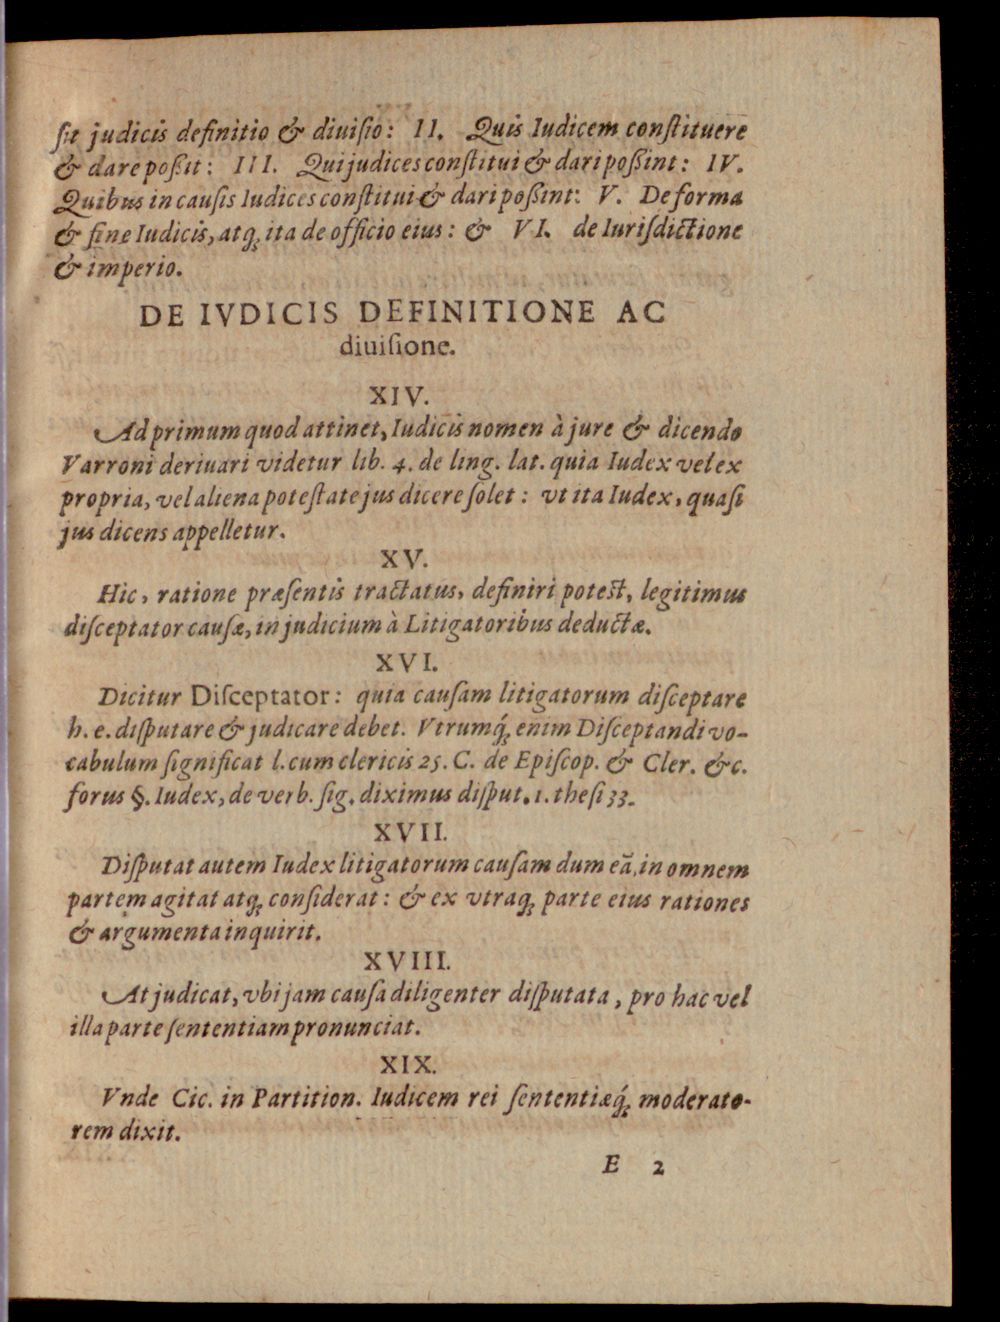 ſit judicis definitio & diuiſio: II. Quis Iudicem conſtituere
& dare poßit: III. Qui judices conſtitui & dari poßint: IV.
Quibus in cauſis Iudices conſtitui & dari poßint: V. De forma
& fine Iudicis, atq́; ita de officio eius: & VI. de Iuriſdictione
& imperio.
DE IVDICIS DEFINITIONE AC
diuiſione.
XIV.
Ad primum quod attinet, Iudicis nomen à jure & dicendo
Varroni deriuari videtur lib. 4. de ling. lat. quia Iudex vel ex
propria, vel aliena poteſtate jus dicere ſolet: vt ita Iudex, quaſi
jus dicens appelletur.
XV.
Hic, ratione præſentis tractatus, definiri poteſt, legitimus
diſceptator cauſæ, in judicium à Litigatoribus deductæ.
XVI.
Dicitur Diſceptator: quia cauſam litigatorum diſceptare
h. e. diſputare & judicare debet. Vtrumq́; enim Diſceptandi vo-
cabulum ſignificat l. cum clericis 25. C. de Epiſcop. & Cler. &c.
forus §. Iudex, de verb. ſig. diximus diſput. 1. theſi 33.
XVII.
Diſputat autem Iudex litigatorum cauſam dum eā, in omnem
partem agitat atq; conſiderat: & ex vtraq; parte eius rationes
& argumenta inquirit.
XVIII.
At judicat, vbi jam cauſa diligenter diſputata, pro hac vel
illa parte ſententiam pronunciat.
XIX.
Vnde Cic. in Partition. Iudicem rei ſententiæq́; moderato-
rem dixit.
E 2